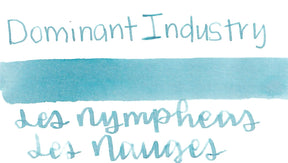 Dominant Industry
Les Nympheas
Les Nauges